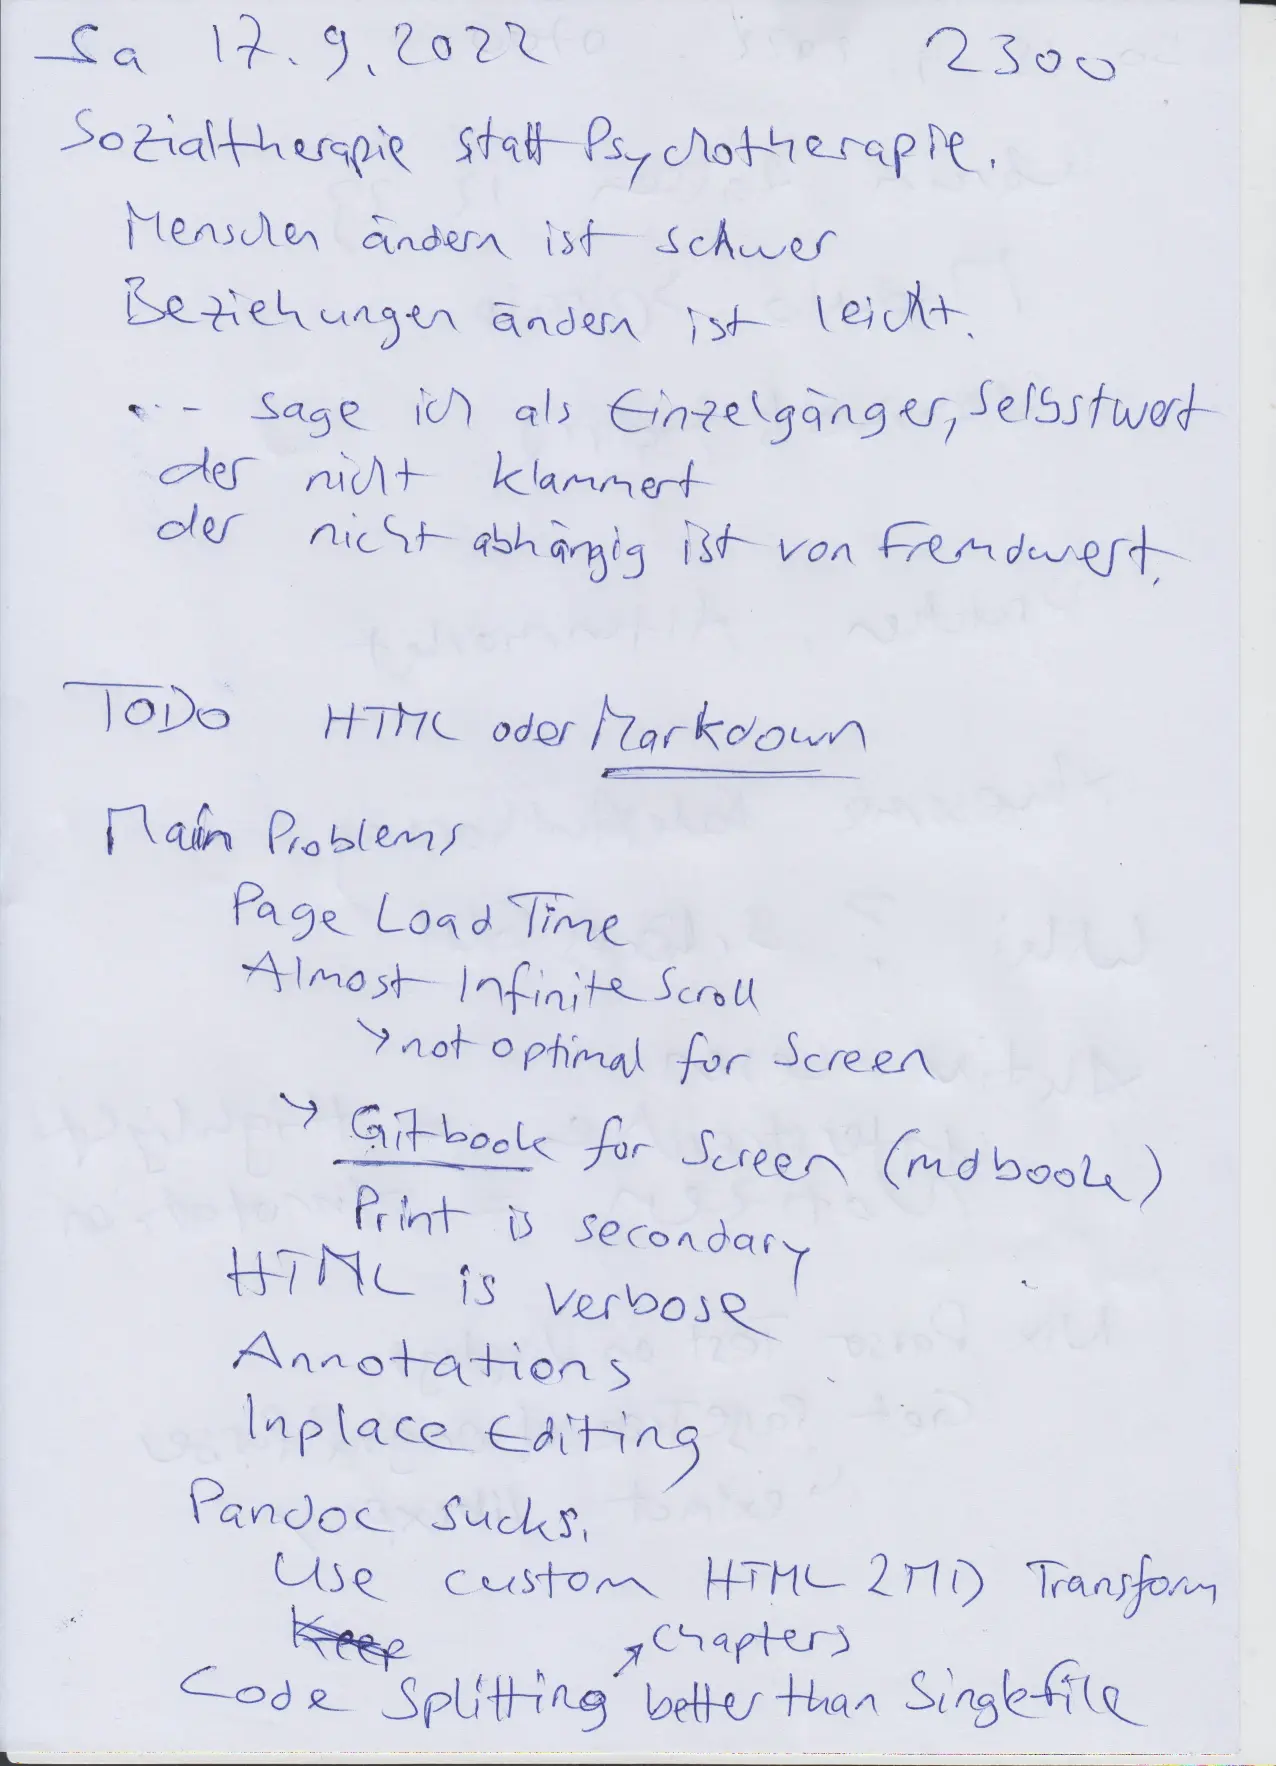 Sa 17.9.2022 2300
Sozialtherapie statt Psychotherapie.
Menschen ändern ist schwer
Beziehungen ändern ist leicht.
... - sage ich als Einzelgänger, Selbstwert
der nicht klammert
der nicht abhängig ist von Fremdwert.
TODO HTML oder Markdown
Main Problems
Page Load Time
Almost Infinite Scroll
→ not optimal for Screen
→ Gitbook for Screen (mdbook)
Print is secondary
HTML is verbose
Annotations
Inplace Editing
Pandoc sucks.
Use custom HTML2MD Transform
Keep
↗ Chapters
Code Splitting better than Singlefile